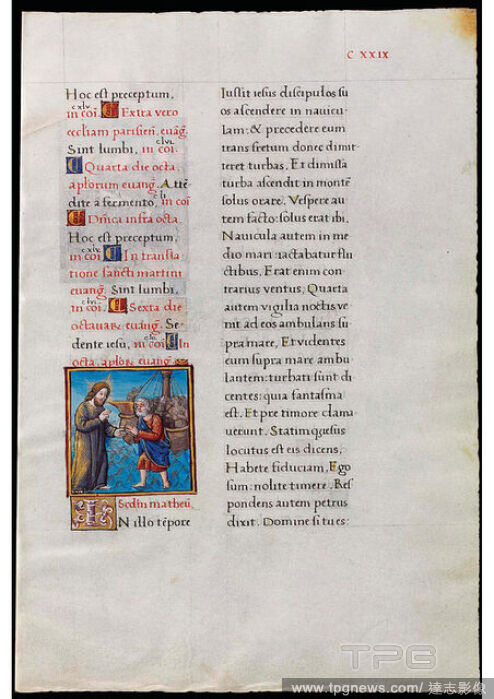 C XXIX
Hoc est preceptum,
cxlv.
in coi. Extra vero
eccliam parisien. euāg.
Sint lumbi, in coi.
clvi.
Quarta die octa.
aplorum euang. Attē
dite a fermento, in coi
li
Dnica infra octa.
Hoc est preceptum,
cxlv
in coi. In transla
tione sancti martini
euang. Sint lumbi,
clvi.
in coi. Sexta die
octauaꝝ euang. Se
dente iesu, in coi. In
octa. aploꝝ euang.
Sedm matheū,
IN illo tēpore
Iussit iesus discipulos su
os ascendere in nauicu
lam: & precedere eum
trans fretum donec dimit
teret turbas. Et dimissa
turba ascendit in montē
solus orare. Vespere au
tem facto: solus erat ibi.
Nauicula autem in me
dio mari: iactabatur flu
ctibus. Erat enim con
trarius ventus. Quarta
autem vigilia noctis ve
nit ad eos ambulans su
pra mare. Et videntes
eum supra mare ambu
lantem: turbati sunt di
centes: quia fantasma
est. Et pre timore clama
uerunt. Statimq; iesus
locutus est eis dicens,
Habete fiduciam, Ego
sum: nolite timere. Res
pondens autem petrus
dixit. Domine si tu es:
TPG
www.tpgnews.com/達志影像